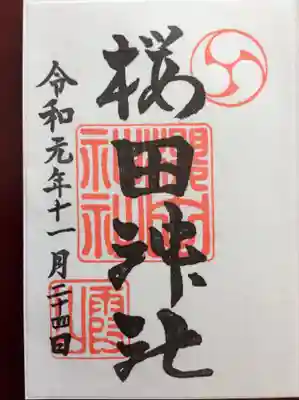 桜田神社
令和元年十一月二十四日